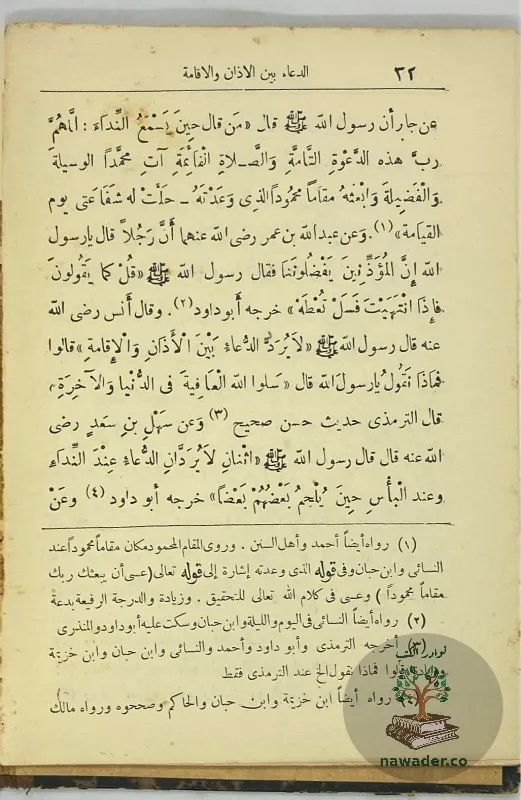 ٣٢ الدعاء بين الاذان والاقامة
عن جابر أن رسول الله ﷺ قال «مَن قال حِينَ يَسْمَعُ النِّدَاءَ : اَللَّهُمَّ
ربَّ هذه الدَّعْوَةِ التَّامَّةِ وَالصَّـلاةِ الْقَائِمَةِ آتِ مُحَمَّداً الوسيلةَ
وَالْفَضِيلَةَ وَابْعَثْهُ مقاماً محموداً الذى وَعَدْتَهُ ـ حَلَّتْ له شَفَاعَتى يوم
القيامة» (١) . وَعن عبد الله بن عمر رضى الله عنهما أَنَّ رَجُلاً قال يا رسول
الله إِنَّ المُؤَذِّنِينَ يَفْضُلُونَنَا فقال رسول الله ﷺ «قُلْ كما يَقُولُونَ
فإِذَا انْتَهَيْتَ فَسَلْ تُعْطَهْ» خرجه أبو داود (٢) . وقال أنس رضى الله
عنه قال رسول الله ﷺ «لاَ يُرَدُّ الدُّعاءُ بَيْنَ الْأَذَانِ وَالْإِقامَةِ» قالوا
فَمَاذَا نَقُولُ يا رسولَ الله قال «سَلوا الله الْعَافِيةَ فى الدُّنْيا وَالْآخِرَةِ»
قال الترمذى حديث حسن صحيح (٣) وَعن سَهْلِ بنِ سَعدٍ رضى
الله عنه قال قال رسول الله ﷺ «اثْنانِ لاَ يُرَدَّانِ الدُّعاءُ عِنْدَ النِّدَاءِ
وعند الْبَأْسِ حِينَ يُلْحِمُ بَعْضُهُمْ بَعْضاً» خرجه أبو داود (٤) وَعَنْ
(١) رواه أيضاً أحمد وأهل السنن . وروى المقام المحمود مكان مقاماً محموداً عند
النسائى وابن حبان وفى قوله الذى وعدته إشارة إلى قوله تعالى (عسى أن يبعثك ربك
مقاماً محموداً) وعسى فى كلام الله تعالى للتحقيق . وزيادة والدرجة الرفيعة بدعة
(٢) رواه أيضاً النسائى فى اليوم والليلة وابن حبان وسكت عليه أبو داود والمنذرى
(٣) أخرجه الترمذى وأبو داود وأحمد والنسائى وابن حبان وابن خزيمة
قالوا فماذا نقول الخ عند الترمذى فقط
(٤) رواه أيضاً ابن خزيمة وابن حبان والحاكم وصححوه ورواه مالك
نوادر الكتب
nawader.co